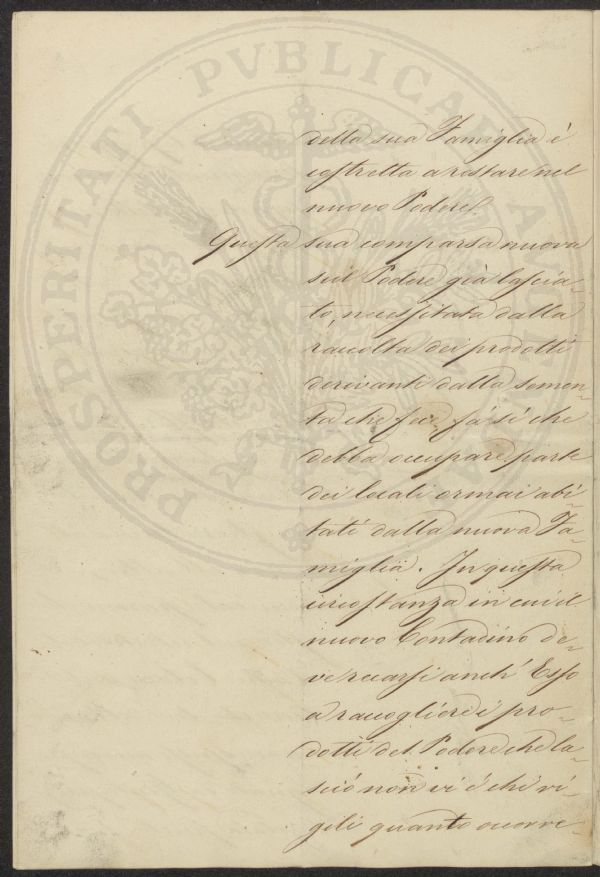 PROSPERITATI PVBLICAE AVGENDAE
della sua Famiglia é
costretta a restare nel
nuovo Podere.
Questa sua comparsa nuova
sul Podere già lascia-
to, necessitata dalla
raccolta dei prodotti
derivanti dalla semen-
ta che fece, fá sì che
debba occupare parte
dei locali ormai abi-
tati dalla nuova Fa-
miglia. In questa
circostanza in cui il
nuovo Contadino de-
ve recarsi anch' Esso
a raccogliere i pro-
dotti del Podere che la-
sció non vi é chi vi-
gili quanto occorre-